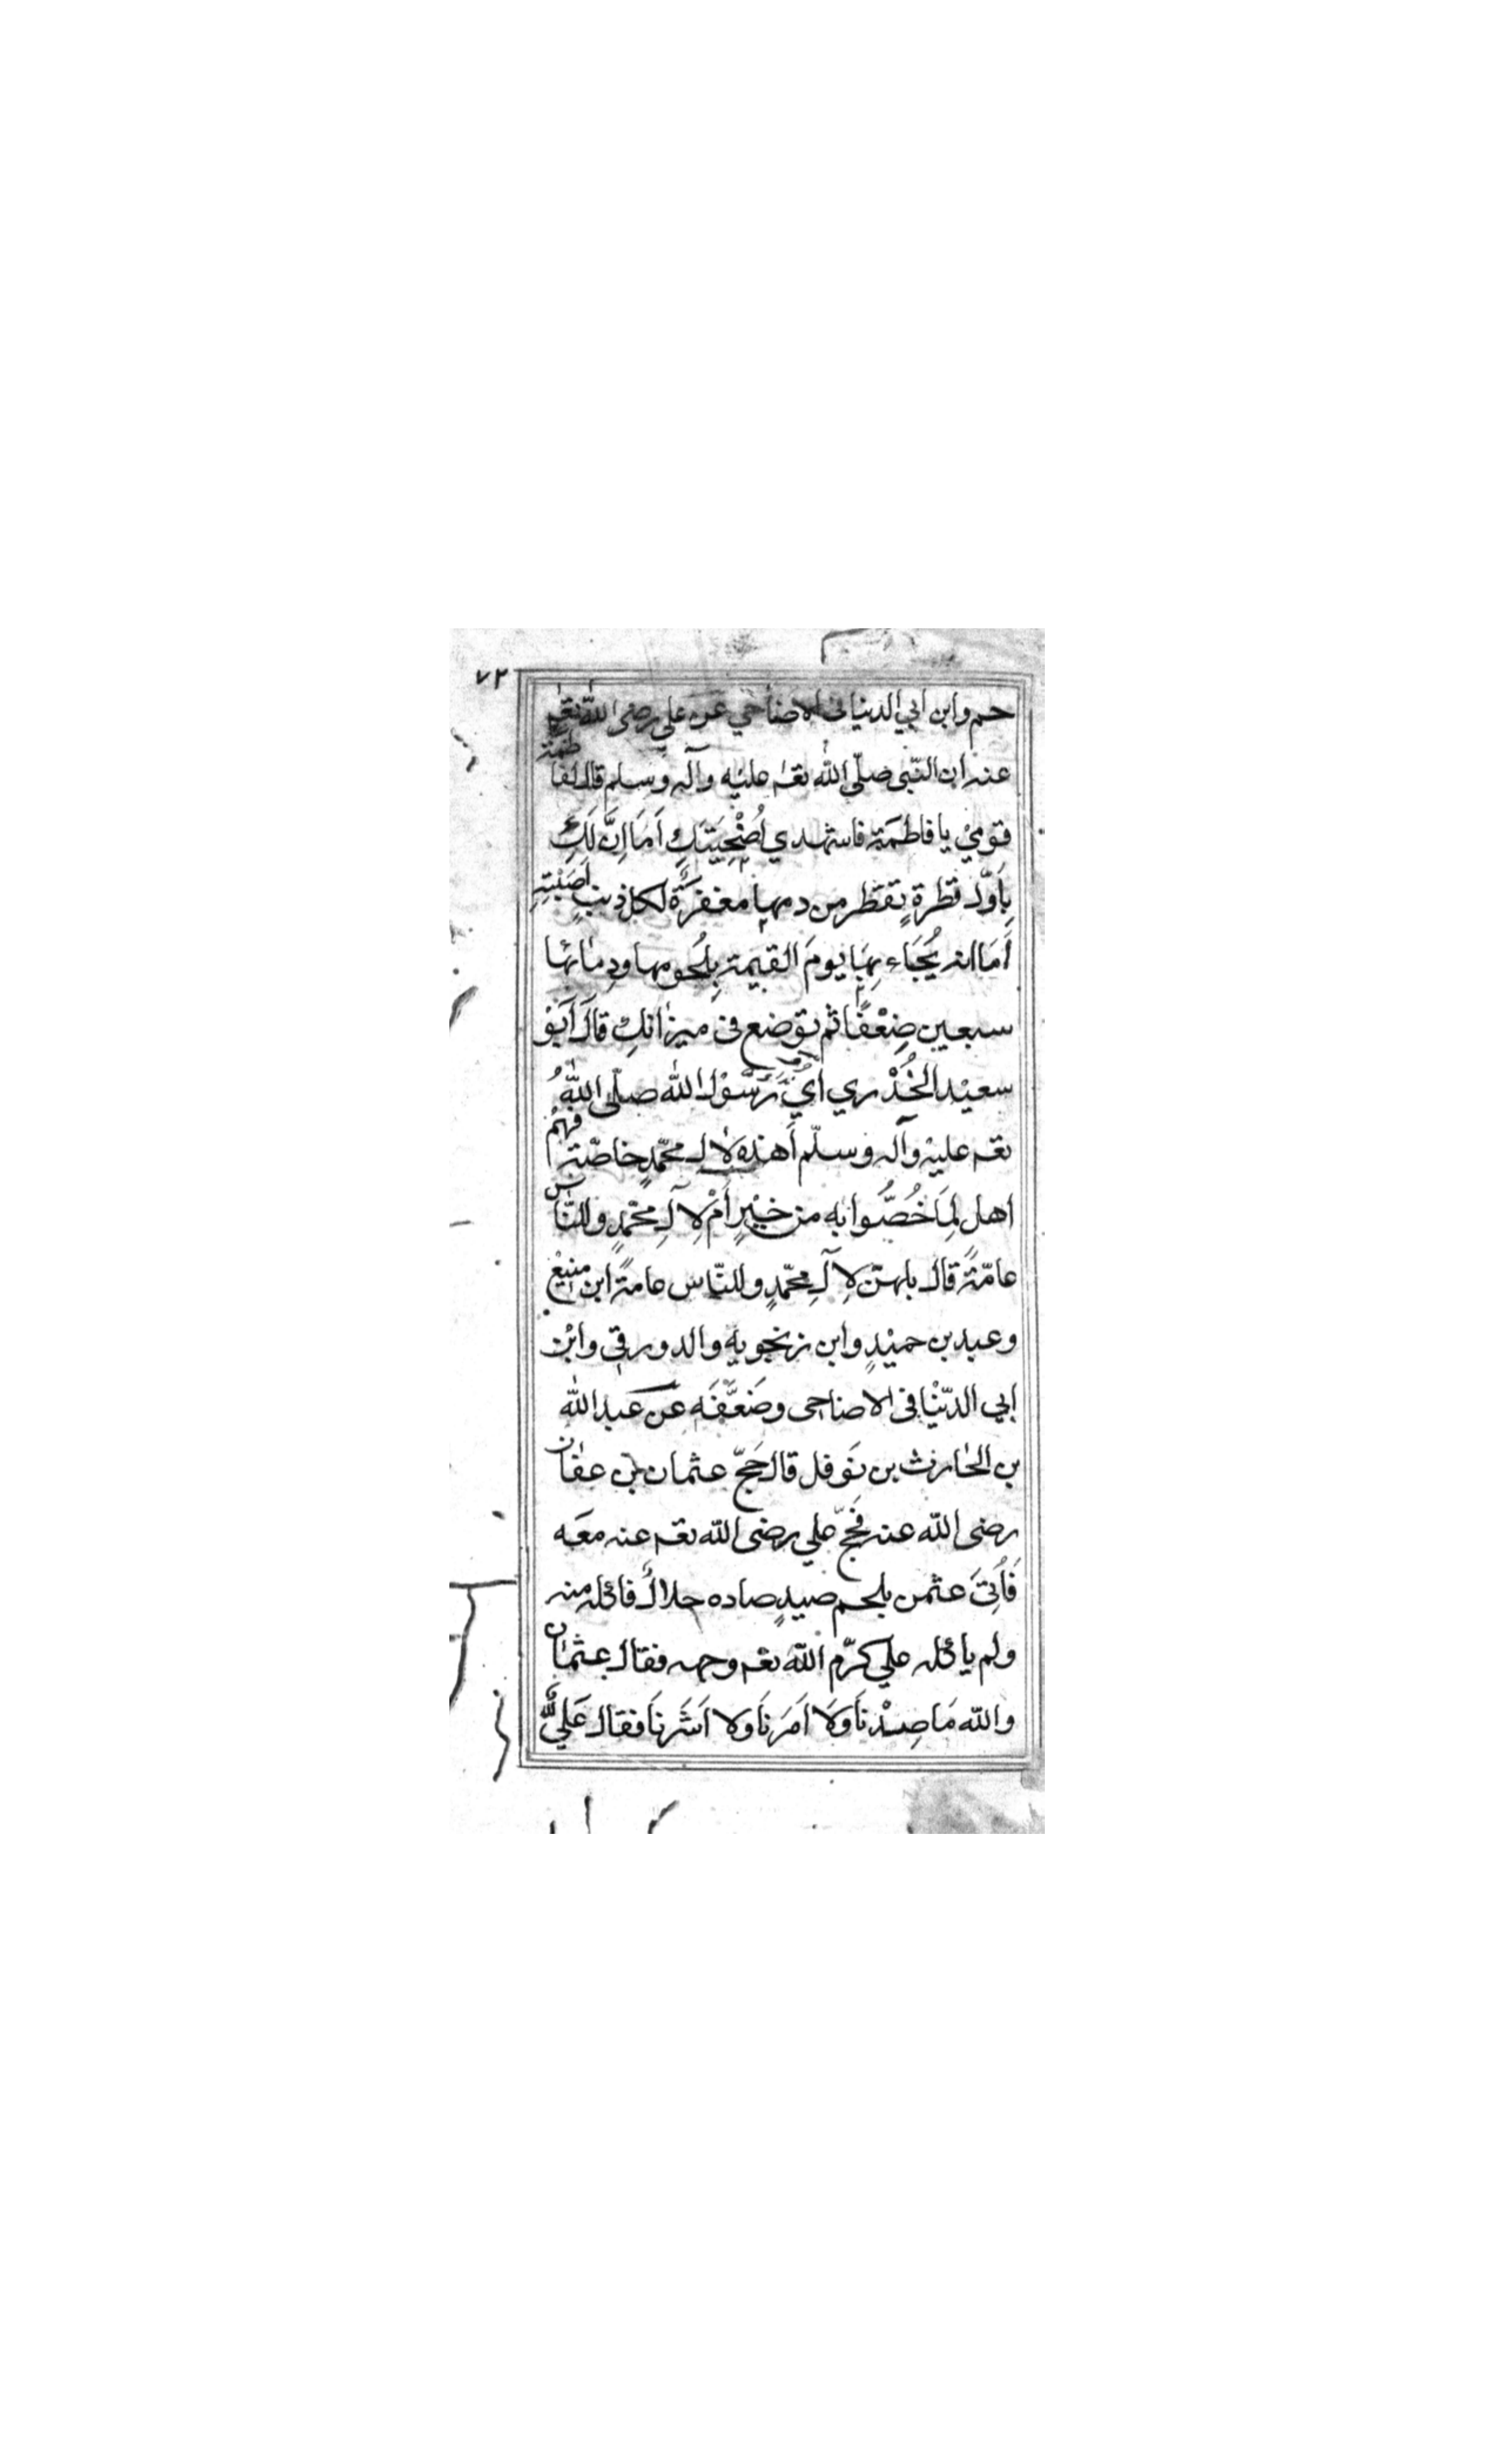 ٧٢
حم وابن ابي الدنيا فى الاضاحي عن علي رضى الله تعم
عنه ان النّبى صلّى الله تعم عليه وآله وسلم قال لفاطمة
قوميْ يا فاطمَة فاشهدي اُضْحِيَتَكِ اَمَا اِنَّ لَكِ
بِاَوّل قطرة تقطر من دمها مغفرَة لكل ذنبٍ اَصَبْتِهِ
أَمَا انه يُجَاء بِهَا يومَ القيمة بِلُحومها ودِمَائها
سبعين ضِعْفًا ثم توضع فى ميزانكِ قالَ اَبُوْ
سعيْد الخُدْري اَيْ رَسُوْل الله صلّى اللهُ
تعم عليه وآله وسلّم أهذه لال محمّدٍ خاصّة فهُم
اهل لِمَا خُصُّوا بِه من خيْرٍ اَمْ لِآلِ محمّدٍ وللنَّاس
عامّةً قال بل هىَ لِآلِ محمّدٍ وللنّاس عامة ابن منيعْ
وعبد بن حميْدٍ وابن زنجويه والدورقى وابْن
ابي الدّنْيا فى الاضاحى وضَعَّفَه عن عبد الله
بن الحارث بن نَوفل قال حَجّ عثمان بن عفان
رضى الله عنه فَحجّ علي رضى الله تعم عنه معَه
فَأُتِىَ عثمن بلحم صيدٍ صاده حلالٌ فاكله منه
ولم ياكله علي كرّم الله تعم وجهه فقال عثمان
والله مَا صِدْنَا وَلَا اَمَرنَا وَلا اَشَرنَا فقال عَليٌّ